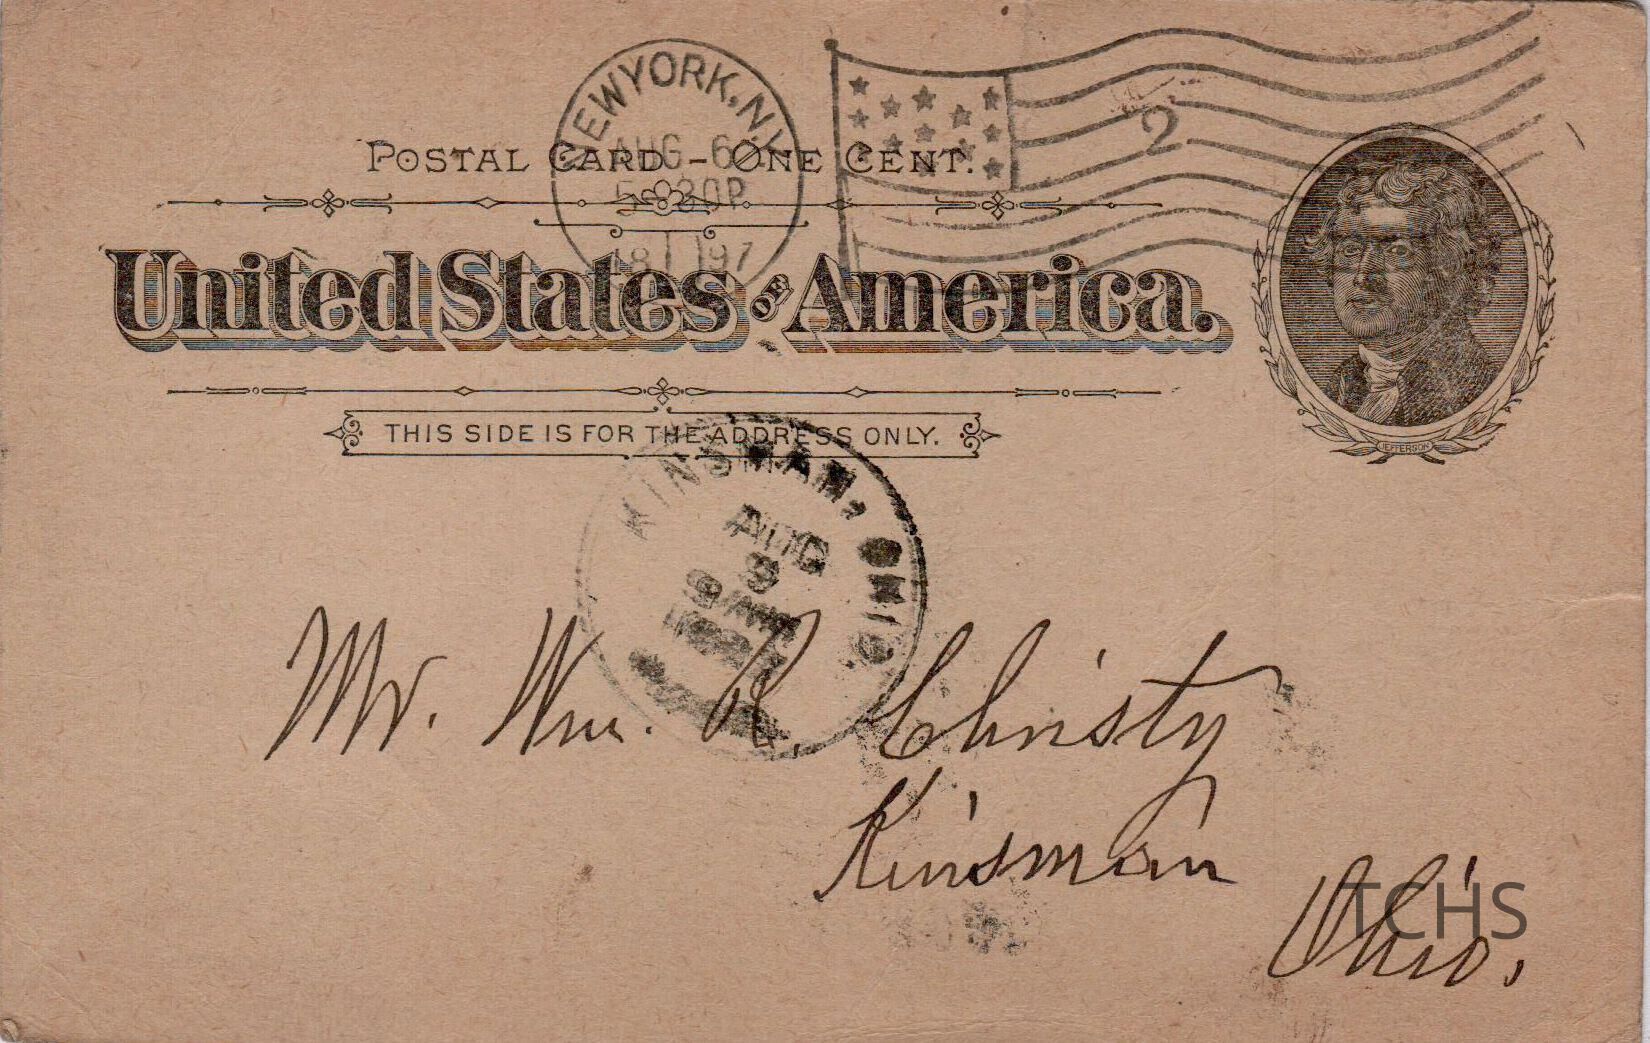 NEW YORK, N.Y.
AUG 6
5-30P
1897
2
POSTAL CARD - ONE CENT.
United States OF America.
JEFFERSON
THIS SIDE IS FOR THE ADDRESS ONLY.
KINSMAN, OHIO
AUG
9 AM
Mr. Wm. R. Christy
Kinsman
Ohio.
TCHS